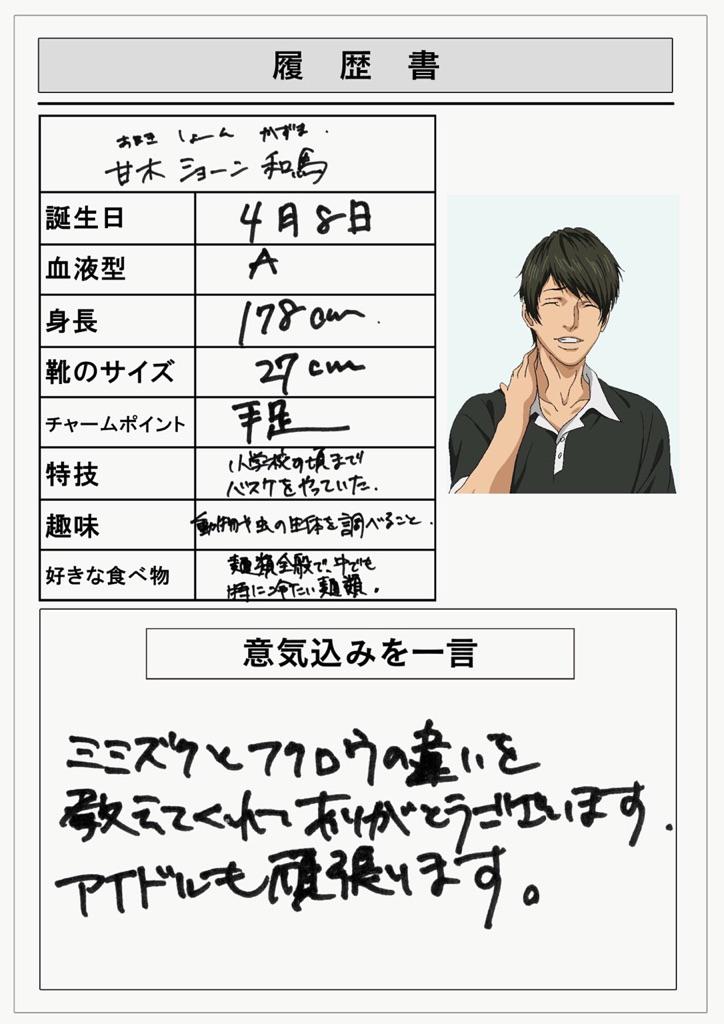 履歴書
あまき しょーん かずま
甘木 ショーン 和馬
誕生日 4月8日
血液型 A
身長 178cm
靴のサイズ 27cm
チャームポイント 手足
特技 小学校の頃まで
バスケをやっていた.
趣味 動物や虫の生体を調べること.
好きな食べ物 麺類全般で、中でも
特に冷たい麺類。
意気込みを一言
ミミズクとフクロウの違いを
教えてくれてありがとうございます.
アイドルも頑張ります。